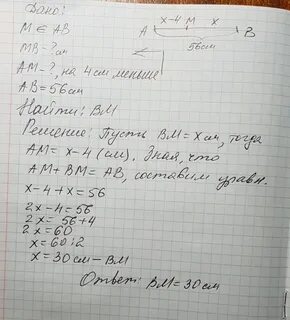 Дано:
M ∈ AB
MB - ? см
AM - ?, на 4 см меньше
AB = 56 см
x-4 M x
A B
56 см
Найти: BM
Решение: Пусть BM = x см, тогда
AM = x-4 (см). Зная, что
AM + BM = AB, составим уравн.
x-4+x=56
2x-4=56
2x = 56+4
2x=60
x=60:2
x=30 см - BM
Ответ: BM = 30 см